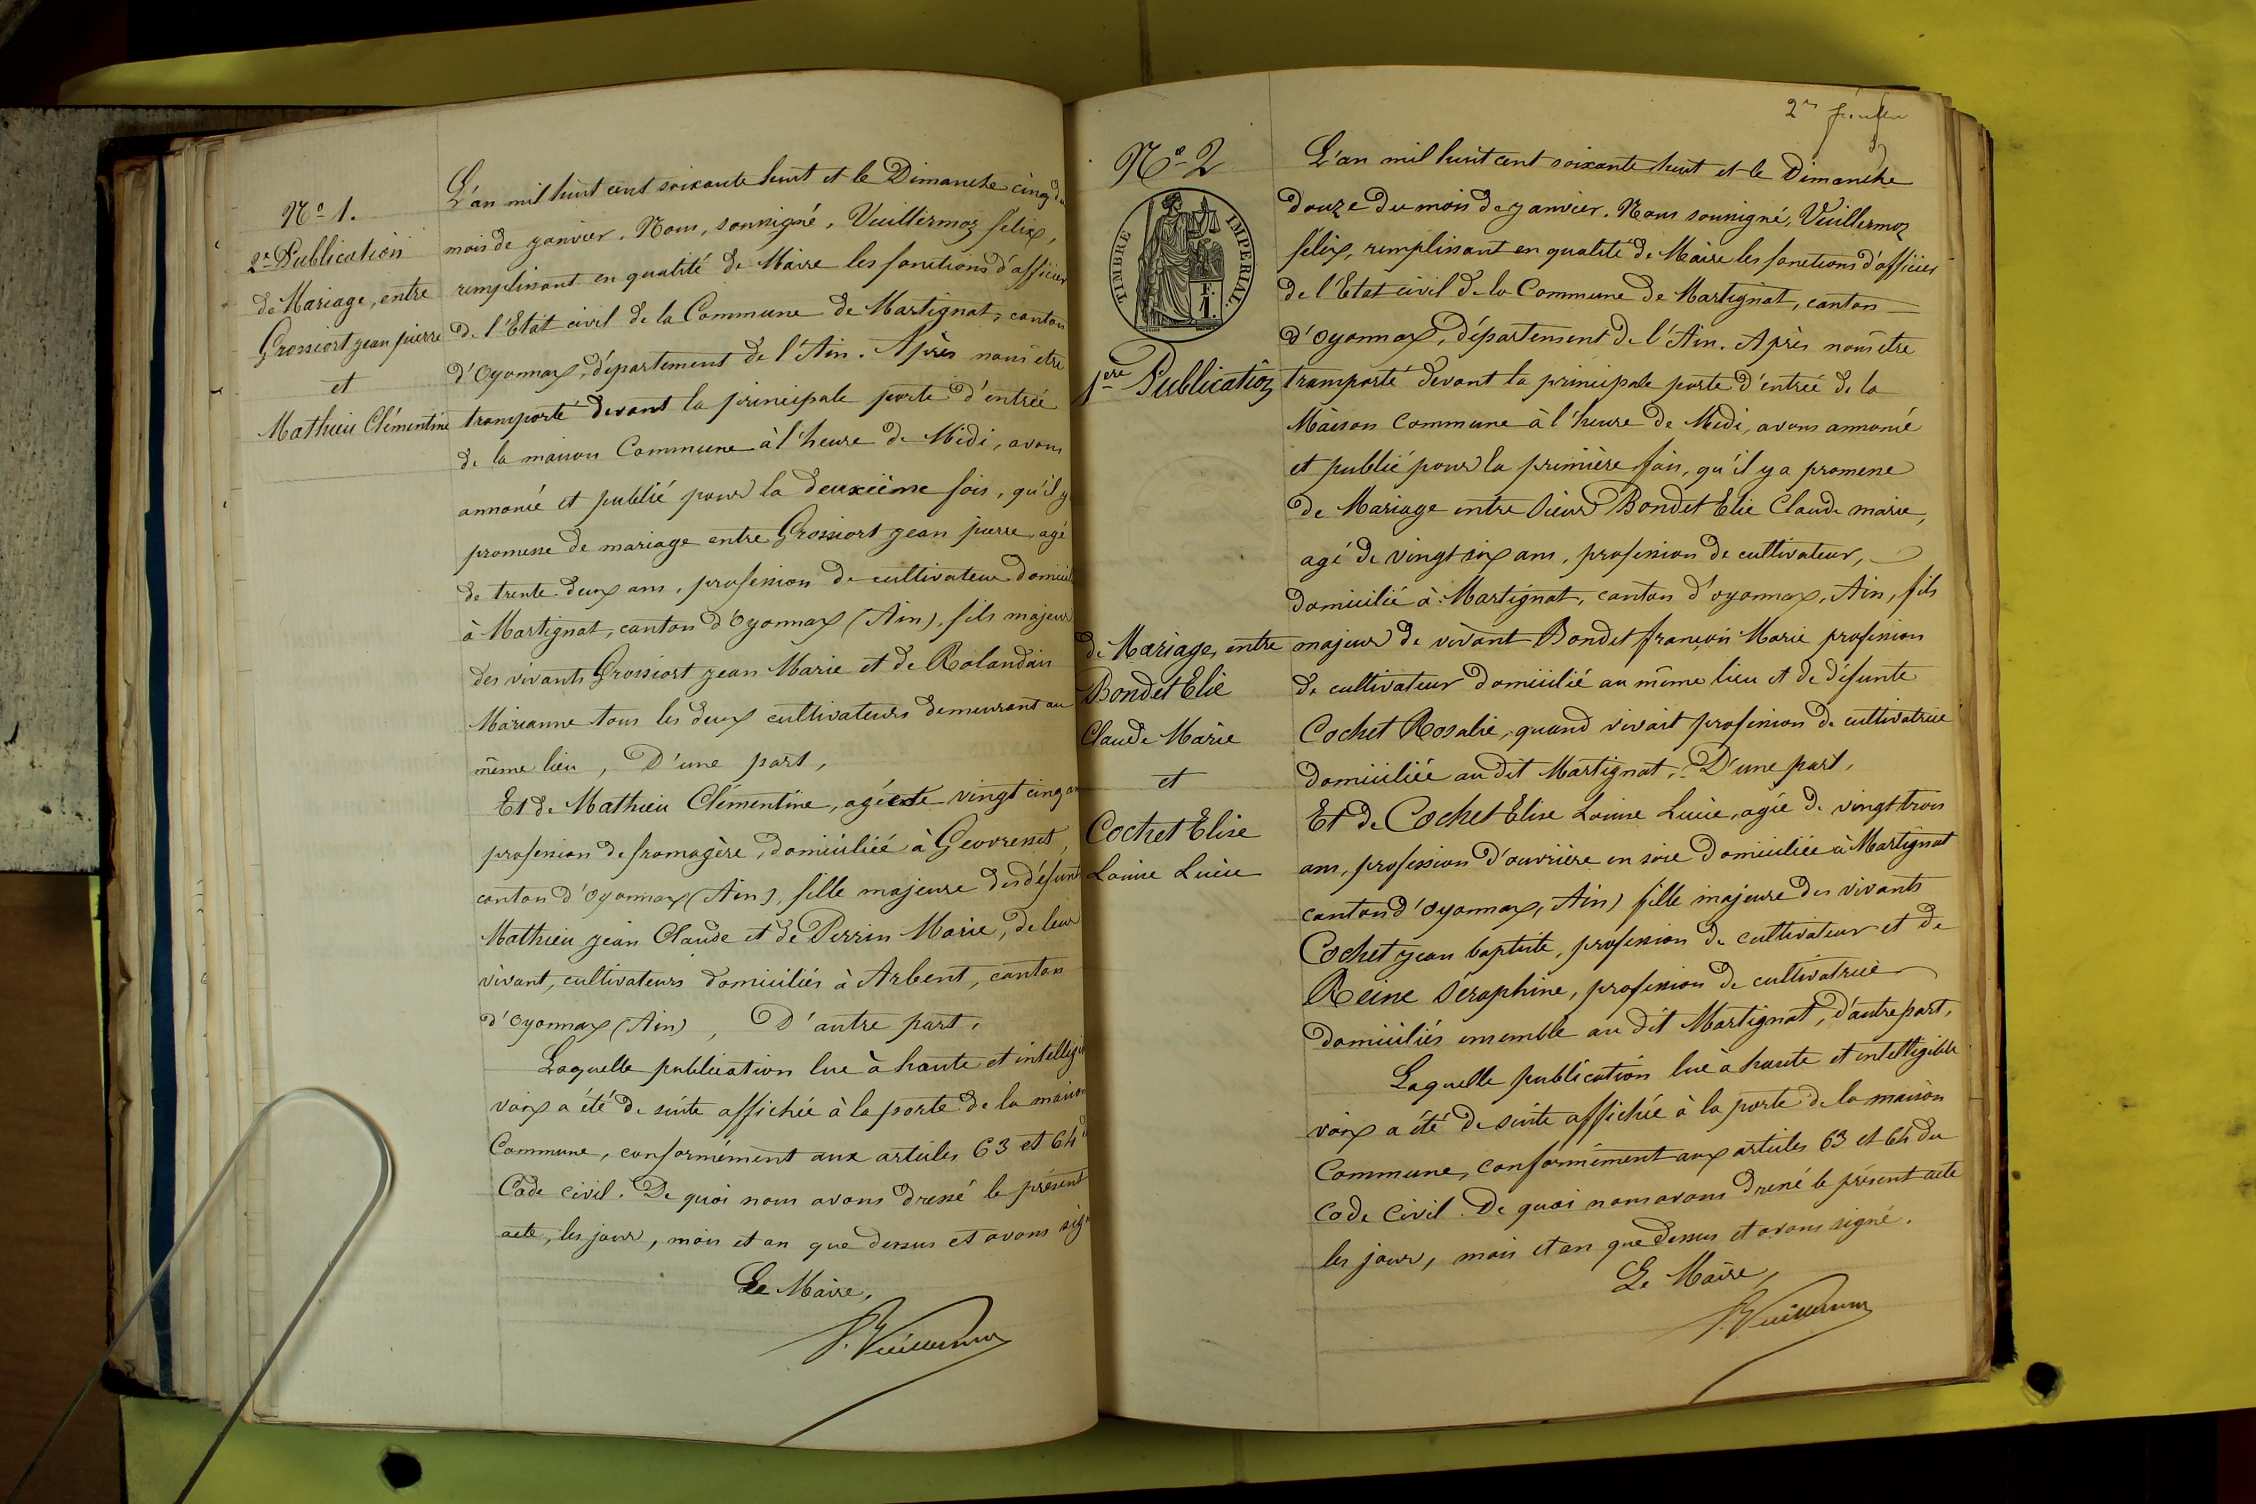 N° 1.
2e Publication
de Mariage, entre
Grossiort jean pierre
et
Mathieu Clémentine
L'an mil huit cent soixante huit et le Dimanche cinq du
mois de janvier. Nous, soussigné, Vuillermoz félix,
remplissant en qualité de Maire les fonctions d'officier
de l'Etat civil de la Commune de Martignat, canton
d'Oyonnax, département de l'Ain. Après nous être
transporté devant la principale porte d'entrée
de la maison Commune à l'heure de Midi, avons
annoncé et publié pour la deuxième fois, qu'il y
promesse de mariage entre Grossiort jean pierre, agé
de trente deux ans, profession de cultivateur domicil
à Martignat, canton d'Oyonnax (Ain), fils majeur
des vivants Grossiort jean Marie et de Rolandain
Marianne tous les deux cultivateurs demeurant au
même lieu, D'une part,
Et de Mathieu Clémentine, agée de vingt cinq an
profession de fromagère, domiciliée à Geovresset,
canton d'Oyonnax (Ain), fille majeure des défunts
Mathieu jean Claude et de Perrin Marie, de leur
vivant, cultivateurs domiciliés à Arbent, canton
d'Oyonnax (Ain), D'autre part,
Laquelle publication lue à haute et intelligi
voix a été de suite affichée à la porte de la maison
Commune, conformément aux articles 63 et 64 d
Code civil. De quoi nous avons dressé le présent
acte, les jour, mois et an que dessus et avons sig
Le Maire,
F. Vuillermoz
2e
N° 2
TIMBRE IMPERIAL.
F.
1.
1ere Publication
de Mariage, entre
Bondet Elie
Claude Marie
et
Cochet Elise
Louise Lucie
L'an mil huit cent soixante huit et le Dimanche
douze du mois de janvier. Nous soussigné, Vuillermoz
félix, remplissant en qualité de Maire les fonctions d'officier
de l'Etat civil de la Commune de Martignat, canton
d'Oyonnax, département de l'Ain. Après nous être
transporté devant la principale porte d'entrée de la
Maison Commune à l'heure de Midi, avons annoncé
et publié pour la première fois, qu'il y a promesse
de Mariage entre Sieur Bondet Elie Claude marie,
agé de vingt six ans, profession de cultivateur,
domicilié à Martignat, canton d'oyonnax, Ain, fils
majeur de vivant Bondet françois Marie profession
de cultivateur domicilié au même lieu et de défunte
Cochet Rosalie, quand vivait profession de cultivatrice
domiciliée au dit Martignat. D'une part,
Et de Cochet Elise Louise Lucie, agée de vingt trois
ans, profession d'ouvrière en soie domiciliée à Martignat
canton d'Oyonnax, Ain) fille majeure des vivants
Cochet jean baptiste, profession de cultivateur et de
Reine Séraphine, profession de cultivatrice
domiciliés ensemble au dit Martignat, d'autre part,
Laquelle publication lue à haute et intelligible
voix a été de suite affichée à la porte de la maison
Commune, conformément aux articles 63 et 64 du
Code Civil. De quoi nous avons dressé le présent acte
les jour, mois et an que dessus et avons signé.
Le Maire,
F. Vuillermoz